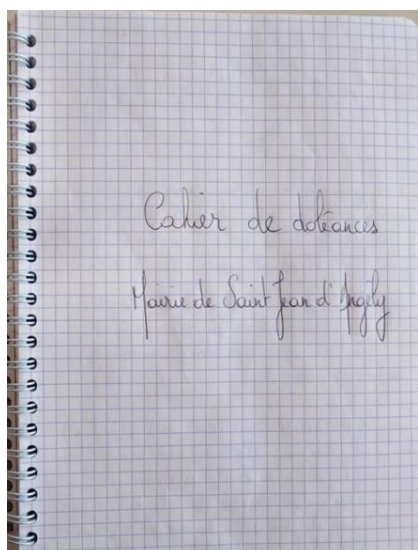 Cahier de doléances
Mairie de Saint Jean d'Angély